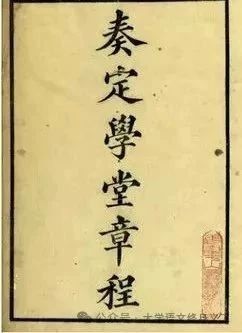 奏定學堂章程
公众号·大学语文修身